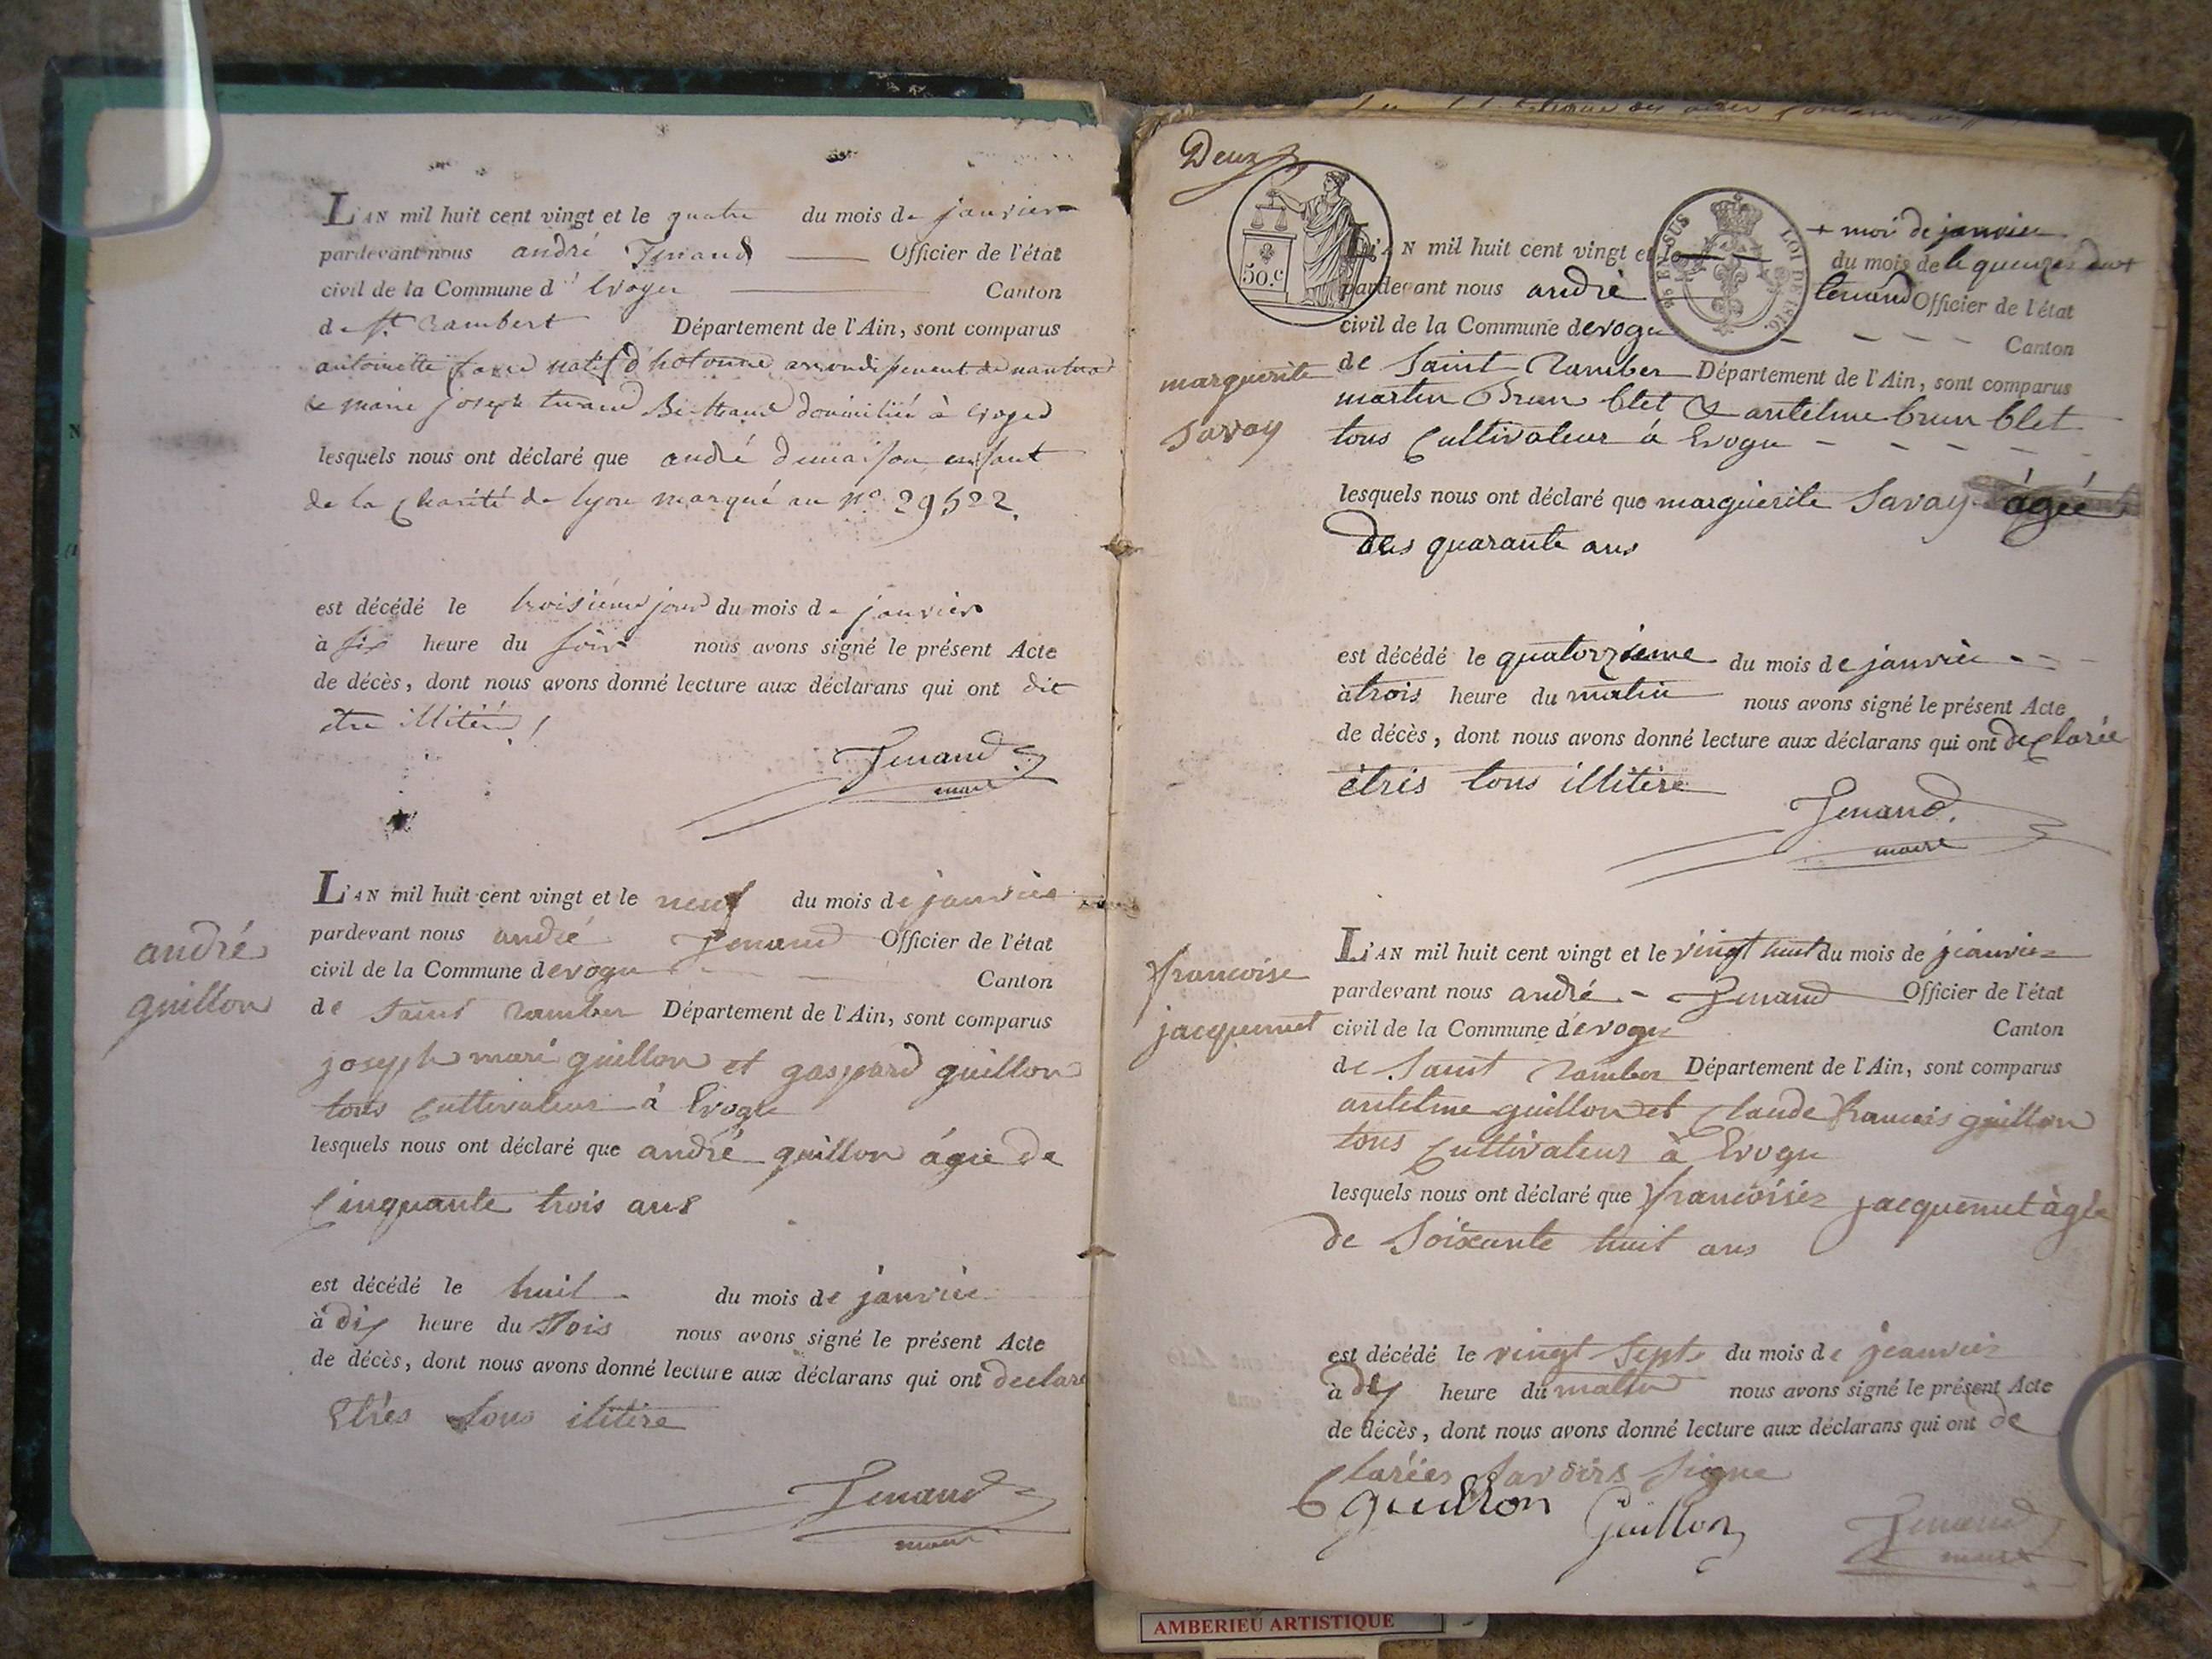 L'AN mil huit cent vingt et le quatre du mois de janvier
pardevant nous andré Tenand Officier de l'état
civil de la Commune d' Evoges Canton
de St. Rambert Département de l'Ain, sont comparus
antoinette natif d'hotonne arrondissement de nantua
& marie joseph tenand domicilié à Evoges
lesquels nous ont déclaré que andré dumaison enfant
de la Charité de lyon marqué au no. 29522.
est décédé le troisième jour du mois de janvier
à six heure du soir nous avons signé le présent Acte
de décès, dont nous avons donné lecture aux déclarans qui ont dit
être
Tenand
maire
andré
guillon
L'AN mil huit cent vingt et le neuf du mois de janvier
pardevant nous andré Tenand Officier de l'état
civil de la Commune devoge Canton
de Saint Ramber Département de l'Ain, sont comparus
joseph mari guillon et gaspard guillon
tous Cultivateur à Evoge
lesquels nous ont déclaré que andré guillon ágée de
Cinquante trois ans
est décédé le huit du mois de janvier
à dix heure du nous avons signé le présent Acte
de décès, dont nous avons donné lecture aux déclarans qui ont declare
Etres tous ilitire
Tenand
maire
Deux
50.c
25 EN SUS LOI DE 1816.
+ moi de janvier
L'AN mil huit cent vingt et le du mois de le quenze
pardevant nous andré tenand Officier de l'état
civil de la Commune devoge Canton
marguerite
Savay
de Saint Ramber Département de l'Ain, sont comparus
martin Brun blet & antelme brun blet
tous Cultivateur á Evoge
lesquels nous ont déclaré que marguerite Savay ágée
des quarante ans
est décédé le quatorzieme du mois de janvier
à trois heure du matin nous avons signé le présent Acte
de décès, dont nous avons donné lecture aux déclarans qui ont declarée
êtris tous illitire
Tenand.
maire
francoise
jacquemet
L'AN mil huit cent vingt et le vingt huit du mois de jeanvier
pardevant nous andré Tenand Officier de l'état
civil de la Commune d'evoge Canton
de Saint Ramber Département de l'Ain, sont comparus
antelme guillon et Claude francois guillon
tous Cultivateur à Evoge
lesquels nous ont déclaré que francoisse jacquemet àgée
de Soixante huit ans
est décédé le vingt Sept du mois de jeanvier
à dix heure du matin nous avons signé le présent Acte
de décès, dont nous avons donné lecture aux déclarans qui ont de
Clarées Savoirs Signe
C guillon Guillon Tenand
maire
AMBERIEU ARTISTIQUE